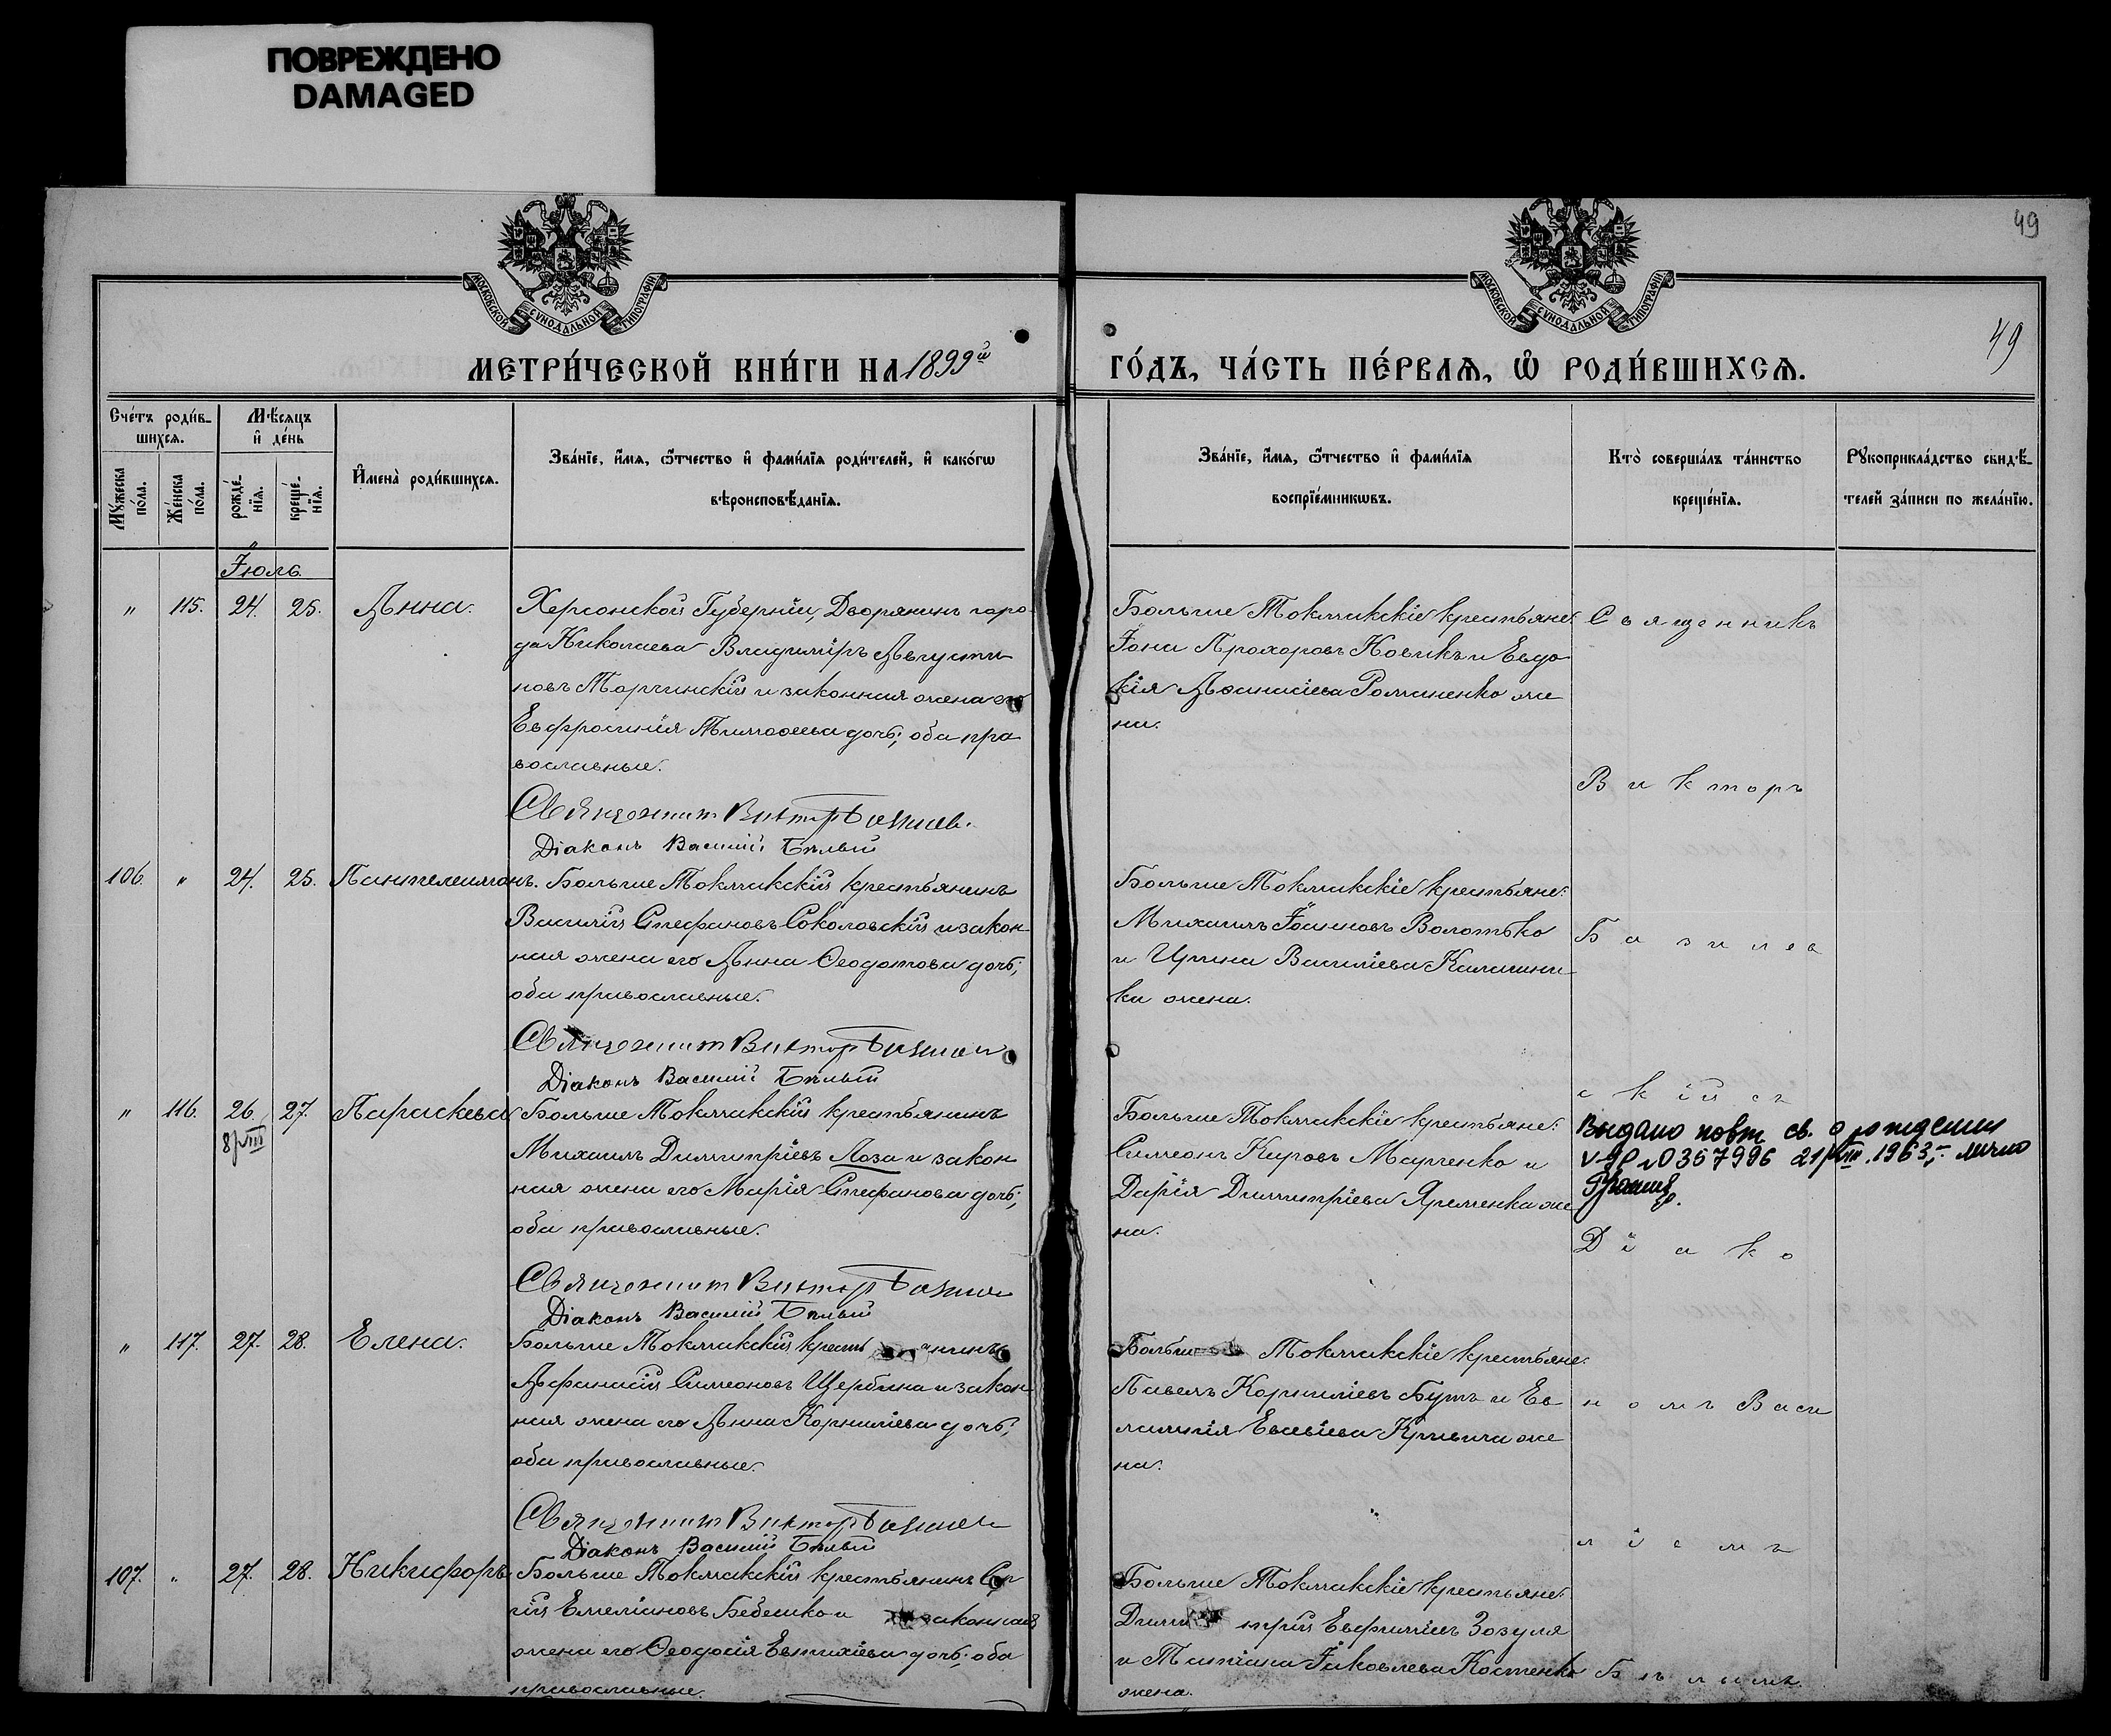 ПОВРЕЖДЕНО
DAMAGED
49
МОСКОВСКОЙ СѴНОДАЛЬНОЙ ТИПОГРАФІИ
МОСКОВСКОЙ СѴНОДАЛЬНОЙ ТИПОГРАФІИ
49
МЕТРИ́ЧЕСКОЙ КНИ́ГИ НА 1899й
ГО́ДЪ, ЧА́СТЬ ПЕ́РВАѦ, Ѡ҆ РОДИ́ВШИХСѦ.
Сче́тъ роди́в-
шихсѧ.
Мꙋ́жеска по́ла.
Же́нска по́ла.
Мѣ́сяцъ
и҆ де́нь
рожде́-нїѧ.
креще́-нїѧ.
И҆мена̀ роди́вшихсѧ.
Зва́нїе, и҆́мѧ, ѻ҆́тчество и҆ фами́лїѧ роди́телей, и҆ како́гѡ
вѣроисповѣ́данїѧ.
Зва́нїе, и҆́мѧ, ѻ҆́тчество и҆ фами́лїѧ
воспрїе́мникѡвъ.
Кто̀ соверша́лъ та́инство
креще́нїѧ.
Рꙋкоприкла́дство свидѣ́-
телей за́писи по жела́нїю.
Іюль.
" 115. 24. 25. Анна. Херсонской Губерніи, Дворянинъ горо-
да Николаева Владиміръ Августи-
новъ Марчинскій и законная жена его
Евфросинія Тимоѳеева дочь; оба пра-
вославные.
Священник Виктор Базилев.
Діаконъ Василій Бѣлый
Больше Токмакскіе крестьяне:
Іона Прохоровъ Новикъ и Евдо-
кія Аѳанасіева Романенко же-
на.
Священникъ
Викторъ
106. " 24. 25. Пантелеимонъ. Больше Токмакскій крестьянинъ
Василій Стефановъ Соколовскій и закон-
ная жена его Анна Ѳеодотова дочь;
оба православные.
Священник Виктор
Діаконъ Василій Бѣлый
Больше Токмакскіе крестьяне:
Михаилъ Іоанновъ Волотько
и Ирина Василіева Калашни-
ка жена.
Базилев
скій съ
" 116. 26. 27. Параскева Больше Токмакскій крестьянинъ
8/VIII
Михаилъ Димитріевъ Лоза и закон-
ная жена его Марія Стефанова дочь;
оба православные.
Священник Виктор
Діаконъ Василій Бѣлый
Больше Токмакскіе крестьяне:
Симеонъ Кировъ Марченко и
Дарія Димитріева Яременка же-
на.
Выдано повт св. о рождении
0357996 21/VIII.1963, лично
Діако
" 117. 27. 28. Елена. Больше Токмакскій крестьянинъ
Афанасій Симеоновъ Щербина и закон-
ная жена его Анна Корнилiева дочь;
оба православные.
Священник Виктор
Діаконъ Василій Бѣлый
Больше Токмакскіе крестьяне:
Павелъ Корниліевъ Бутъ и Ев-
Евсевіева Кривича же-
на.
номъ Васи
ліемъ
107. " 27. 28. Никифоръ. Больше Токмакскій крестьянинъ Сер-
гій Емеліановъ Бебешко и законная
жена его Ѳеодосія Евтихіева дочь; оба
православные.
Больше Токмакскіе крестьяне:
Димитрій Евфиміевъ Зозуля
и Татіана Іаковлева Костенко
жена.
Бѣлымъ